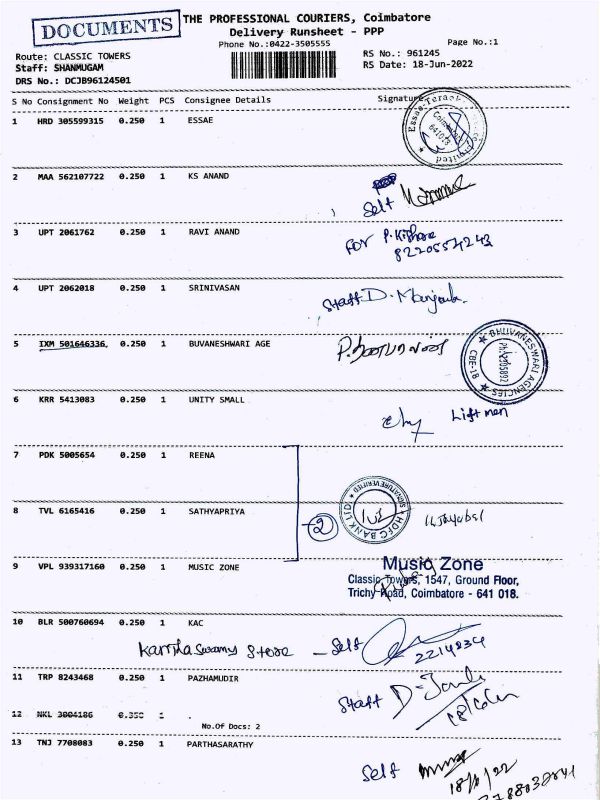 DOCUMENTS
THE PROFESSIONAL COURIERS, Coimbatore
Delivery Runsheet - PPP
Phone No.:0422-3505555
Page No.:1
Route: CLASSIC TOWERS
Staff: SHANMUGAM
DRS No.: DCJB96124501
RS No.: 961245
RS Date: 18-Jun-2022
S No Consignment No Weight PCS Consignee Details Signature
1 HRD 305599315 0.250 1 ESSAE
Coimbatore
2 MAA 562107722 0.250 1 KS ANAND
Self
3 UPT 2061762 0.250 1 RAVI ANAND
For P. Kishore
8220554243
4 UPT 2062018 0.250 1 SRINIVASAN
Staff D.
5 IXM 501646336, 0.250 1 BUVANESHWARI AGE
BHUVANESWARI AGENCIES
CBE-18
6 KRR 5413083 0.250 1 UNITY SMALL
Lift men
7 PDK 5005654 0.250 1 REENA
8 TVL 6165416 0.250 1 SATHYAPRIYA
2
HDFC BANK LTD
SIGNATURE VERIFIED
9 VPL 939317160 0.250 1 MUSIC ZONE
Music Zone
Classic Towers, 1547, Ground Floor,
Trichy Road, Coimbatore - 641 018.
10 BLR 500760694 0.250 1 KAC
Store - Self
2214834
11 TRP 8243468 0.250 1 PAZHAMUDIR
Staff
12 NKL 3004186 0.350 1 .
No.Of Docs: 2
13 TNJ 7708083 0.250 1 PARTHASARATHY
Self